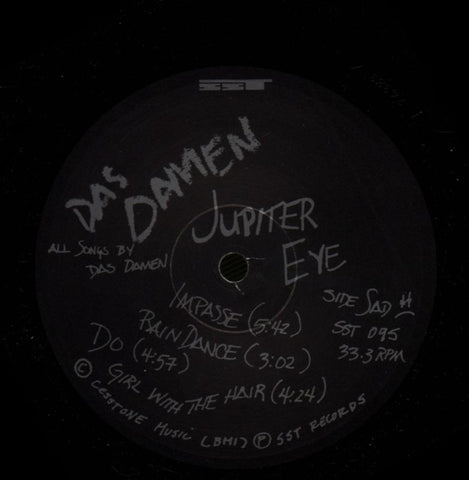 SST
DAS
DAMEN
JUPITER
EYE
ALL SONGS BY
DAS DAMEN
IMPASSE (5:42)
RAIN DANCE (3:02)
DO (4:57)
GIRL WITH THE HAIR (4:24)
SIDE SAD
SST 095
33.3 RPM
© CESSTONE MUSIC (BMI) ℗ SST RECORDS